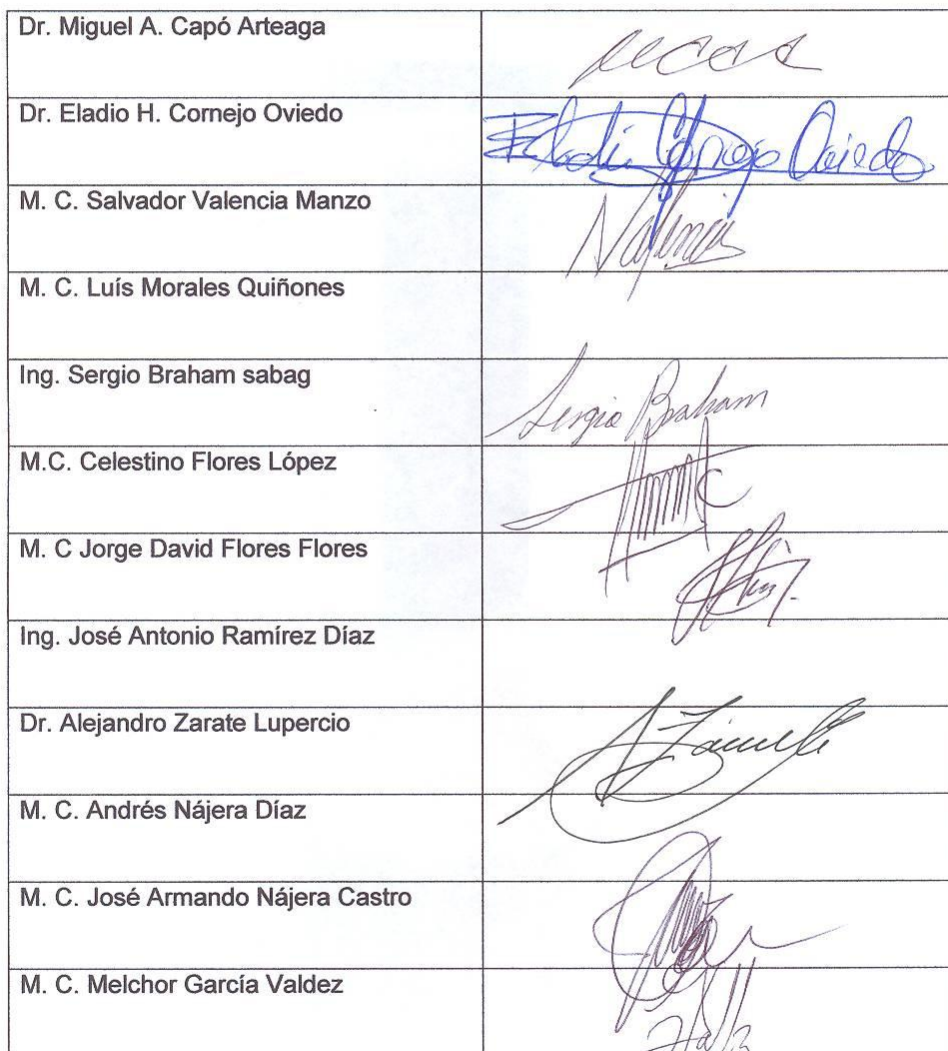 Dr. Miguel A. Capó Arteaga
Dr. Eladio H. Cornejo Oviedo
Eladio Cornejo Oviedo
M. C. Salvador Valencia Manzo
Valencia
M. C. Luís Morales Quiñones
Ing. Sergio Braham sabag
Sergio Braham
M.C. Celestino Flores López
M. C Jorge David Flores Flores
Ing. José Antonio Ramírez Díaz
Dr. Alejandro Zarate Lupercio
M. C. Andrés Nájera Díaz
M. C. José Armando Nájera Castro
M. C. Melchor García Valdez